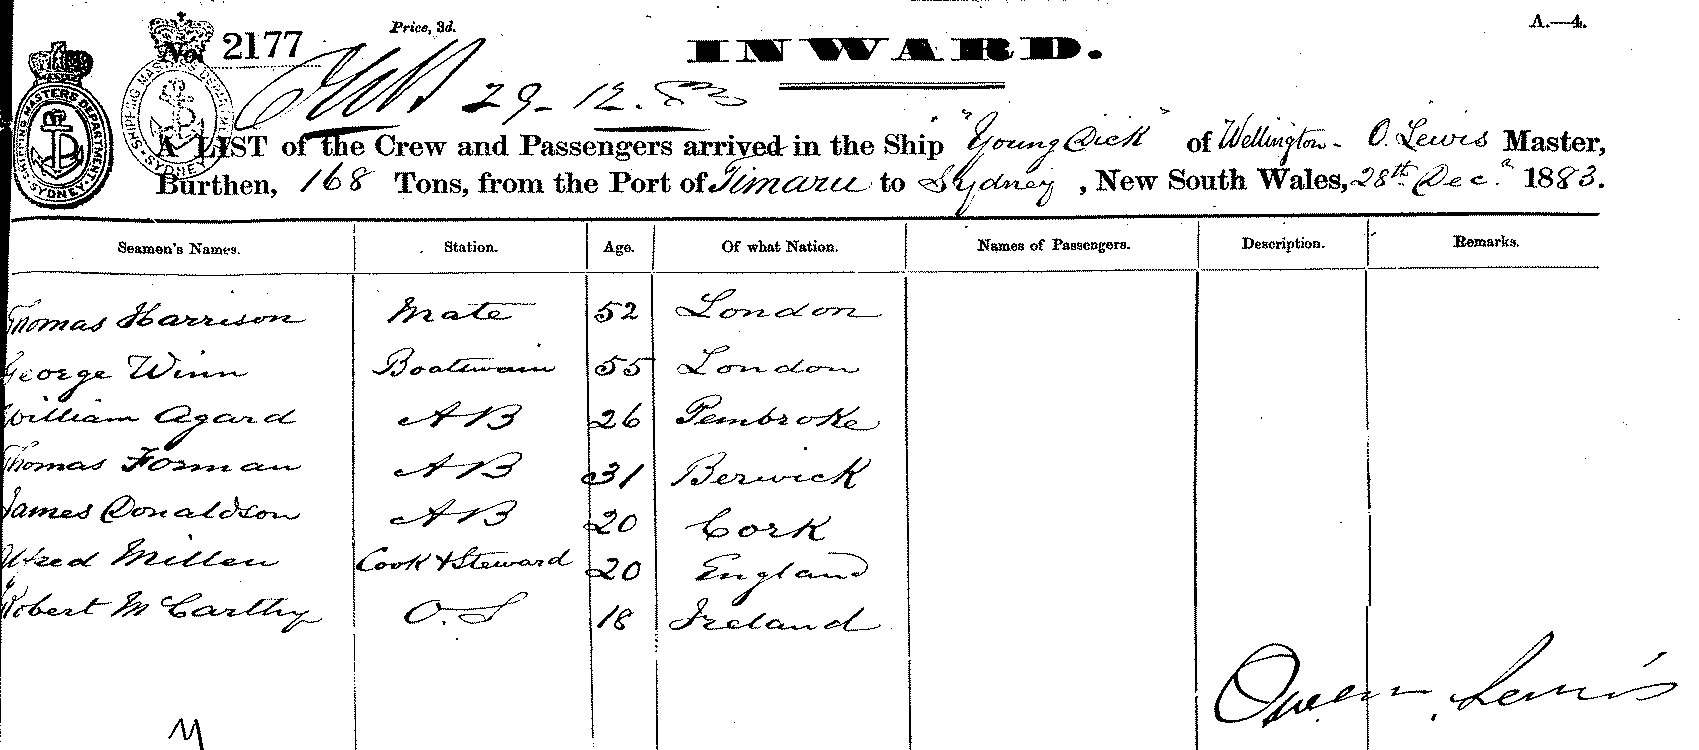 A.—4.
Price, 3d.
No. 2177
INWARD.
29-12.83
A LIST of the Crew and Passengers arrived in the Ship "Young Dick" of Wellington - O. Lewis Master,
Burthen, 168 Tons, from the Port of Timaru to Sydney, New South Wales, 28th Dec.r 1883.
SHIPPING MASTERS DEPARTMENT SYDNEY
SHIPPING MASTERS DEPARTMENT SYDNEY
Seamen's Names. Station. Age. Of what Nation. Names of Passengers. Description. Remarks.
Thomas Harrison Mate 52 London
George Winn Boatswain 55 London
William Agard AB 26 Pembroke
Thomas Forman AB 31 Berwick
James Donaldson AB 20 Cork
Alfred Millen Cook & Steward 20 England
Robert McCarthy O.S 18 Ireland
Owen Lewis